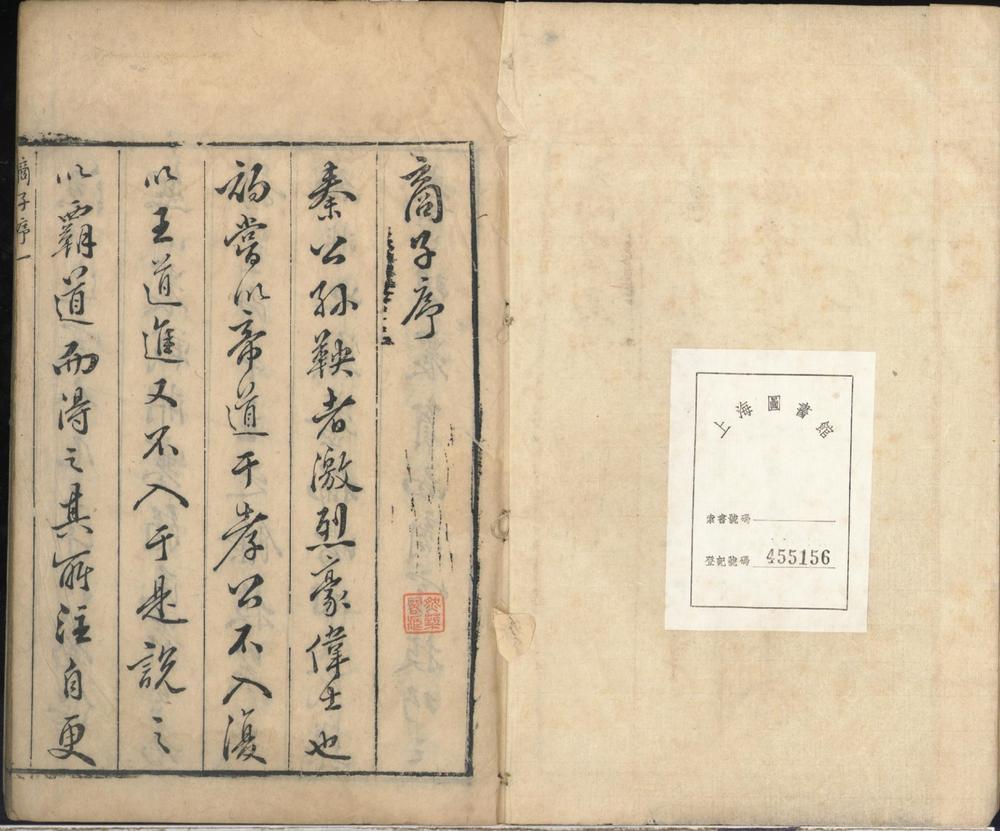 上海圖書館
索書號碼
登記號碼 455156
商子序
秦公孫鞅者激烈豪偉士也
初嘗以帝道干孝公不入復
以王道進又不入于是說之
以霸道而得之其所注自更
商子序一